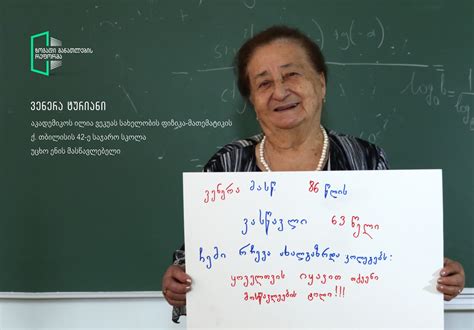 ზოგადი განათლების
რეფორმა
ვენერა ტურიანი
აკადემიკოს ილია ვეკუას სახელობის ფიზიკა-მათემატიკის
ქ. თბილისის 42-ე საჯარო სკოლა
უცხო ენის მასწავლებელი
ვენერა მასწ 86 წლის
ვასწავლი 63 წელი
ჩემი რჩევა ახალგაზრდა კოლეგებს:
ყოველთვის იყავით თქვენი
მოსწავლეების ტოლი!!!